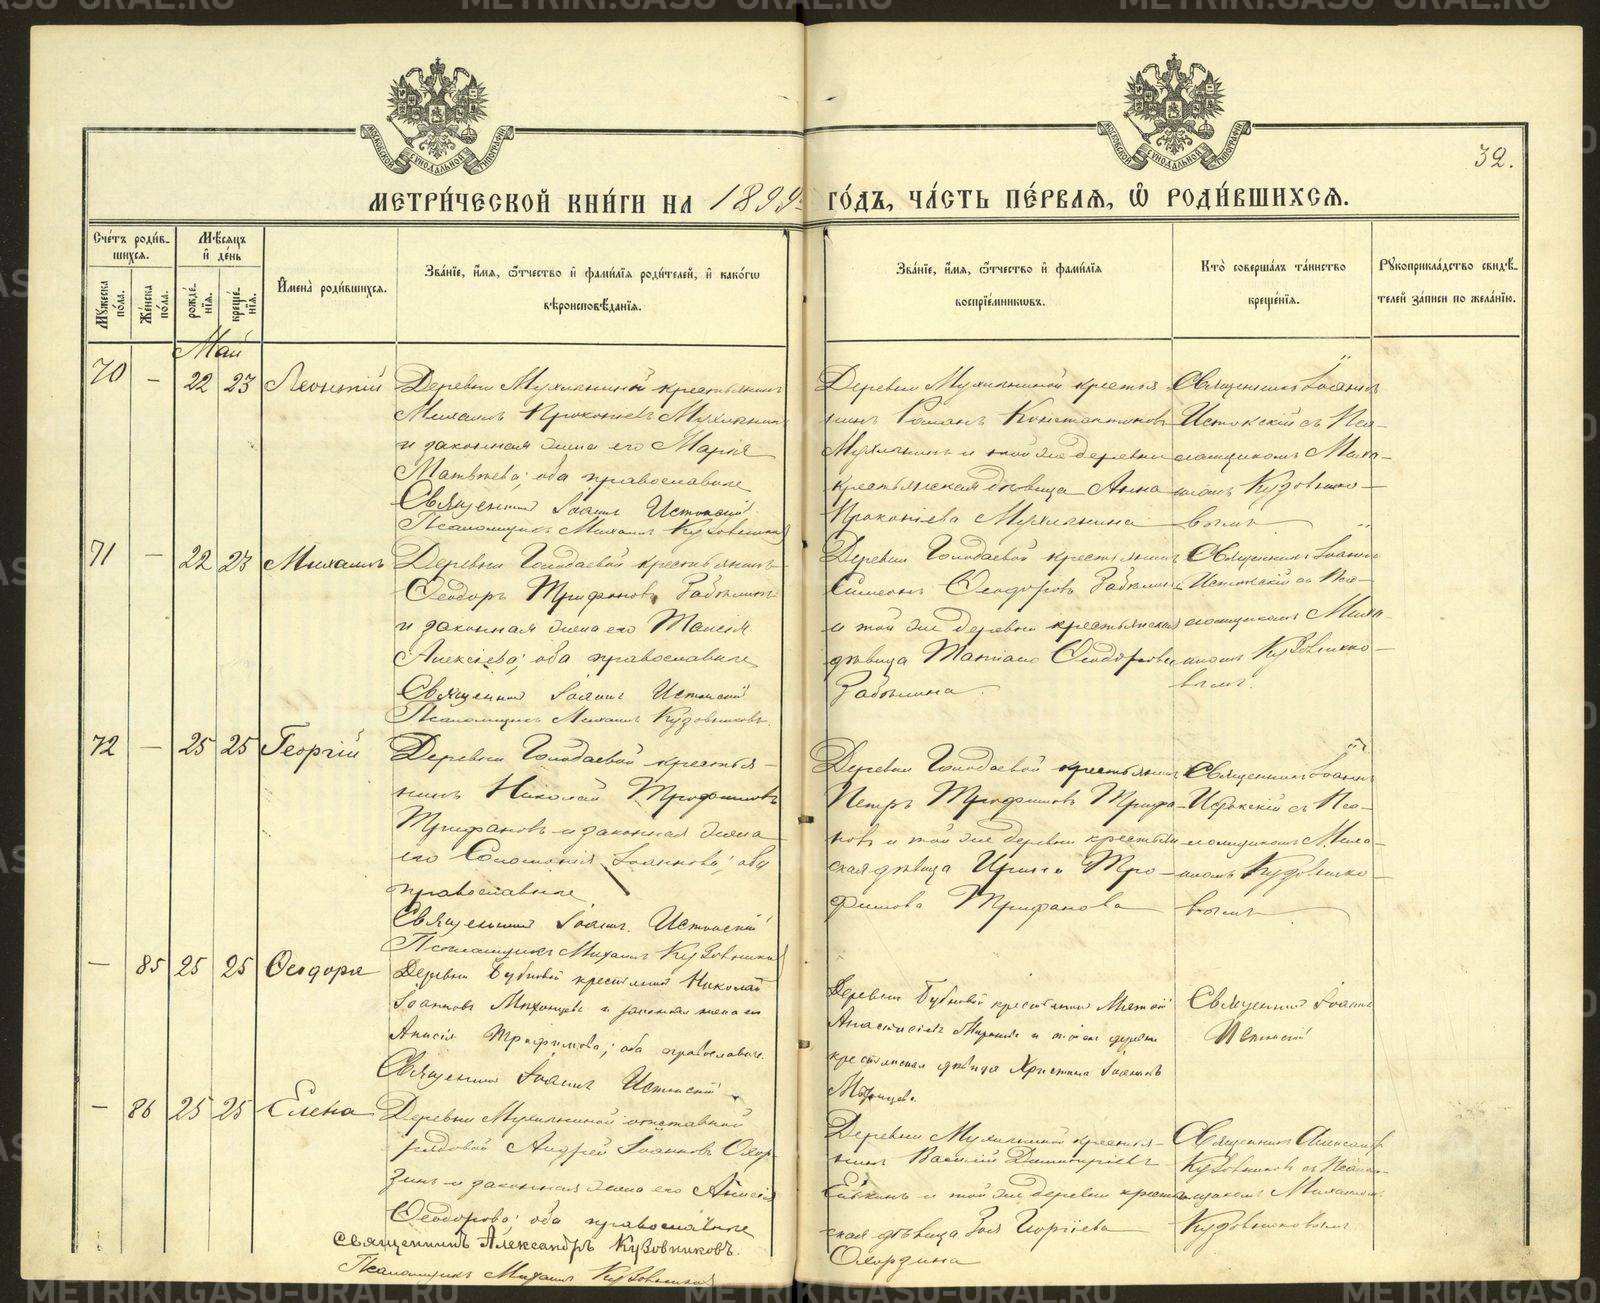 МОСКОВСКОЙ СѴНОДАЛЬНОЙ ТИПОГРАФІИ
МОСКОВСКОЙ СѴНОДАЛЬНОЙ ТИПОГРАФІИ
32.
МЕТРИ́ЧЕСКОЙ КНИ́ГИ НА 1899 ГО́ДЪ, ЧА́СТЬ ПЕ́РВАЯ, Ѿ РОДИ́ВШИХСЯ.
Сче́тъ роди́в-
шихся.
Му́жеска по́ла.
Же́нска по́ла.
Мѣ́сяцъ
и҆ де́нь
рожде́нїя.
креще́нїя.
И҆мена̀ роди́вшихся.
Зва́нїе, и҆́мя, ѻ҆́тчество и҆ фами́лїя роди́телей, и҆ како́гѡ
вѣроисповѣ́данїя.
Зва́нїе, и҆́мя, ѻ҆́тчество и҆ фами́лїя
воспрїе́мниковъ.
Кто̀ соверша́лъ та́инство
креще́нїя.
Рꙋкоприкла́дство свидѣ́-
телей за́писи по жела́нїю.
Май
70 — 22 23 Леонтій
Деревни Мухлыниной крестьянинъ
Михаилъ Прокопіевъ Мухлынинъ
и законная жена его Марія
Матвѣева; оба православные
Священникъ Іоаннъ Истокскій
Псаломщикъ Михаилъ Кузовниковъ
Деревни Мухлыниной крестья
нинъ Романъ Константиновъ
Мухлынинъ и той же деревни
крестьянская дѣвица Анна
Прокопіева Мухлынина
Священникъ Іоаннъ
Истокскій съ Пса-
ломщикомъ Миха-
иломъ Кузовнико-
вымъ
71 — 22 23 Михаилъ
Деревни Голодаевой крестьянинъ
Ѳеодоръ Трифоновъ Забѣлинъ
и законная жена его Таисія
Алексіева; оба православные
Священникъ Іоаннъ Истокскій
Псаломщикъ Михаилъ Кузовниковъ
Деревни Голодаевой крестьянинъ
Симеонъ Ѳеодоровъ Забѣлинъ
и той же деревни крестьянская
дѣвица Татіана Ѳеодорова
Забѣлина.
Священникъ Іоаннъ
Истокскій съ Пса-
ломщикомъ Миха-
иломъ Кузовнико-
вымъ.
72 — 25 25 Георгій
Деревни Голодаевой крестья-
нинъ Николай Трофимовъ
Трифановъ и законная жена
его Соломонія Іоаннова; оба
православные
Священникъ Іоаннъ Истокскій
Псаломщикъ Михаилъ Кузовниковъ
Деревни Голодаевой крестьянинъ
Петръ Трофимовъ Трифа-
новъ и той же деревни крестьян
ская дѣвица Ирина Тро-
фимова Трифанова
Священникъ Іоаннъ
Истокскій съ Пса-
ломщикомъ Миха-
иломъ Кузовнико-
вымъ
— 85 25 25 Ѳеодора
Деревни Бубновой крестьянинъ Николай
Іоанновъ и законная жена его
Анисія Трифонова; оба православные.
Священникъ Іоаннъ Истокскій
Деревни Бубновой крестьянинъ
и той же деревни
крестьянская дѣвица Христина Іоаннова
Священникъ Іоаннъ
Истокскій
— 86 25 25 Елена
Деревни Мухлыниной отставной
рядовой Андрей Іоанновъ Охор-
зинъ и законная жена его Анисія
Ѳеодорова; оба православные
Священникъ Александръ Кузовниковъ.
Псаломщикъ Михаилъ Кузовниковъ
Деревни Мухлыниной крестья-
нинъ Василій Димитріевъ
и той же деревни крестьян
ская дѣвица Зоя Георгіева
Охорзина
Священникъ Александръ
Кузовниковъ съ Псалом-
щикомъ Михаиломъ
Кузовниковымъ
METRIKI.GASO-URAL.RU